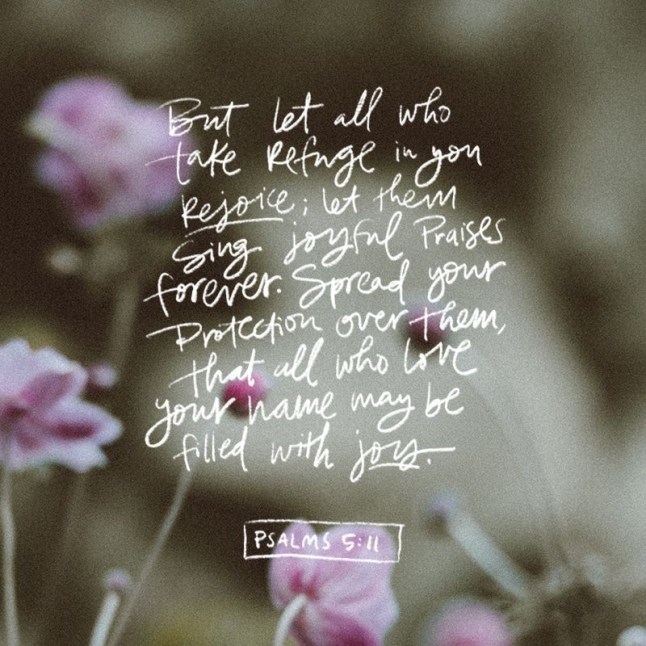 But let all who
take Refuge in you
Rejoice; let them
Sing joyful Praises
forever. Spread your
Protection over them,
that all who love
your name may be
filled with joy.
PSALMS 5:11